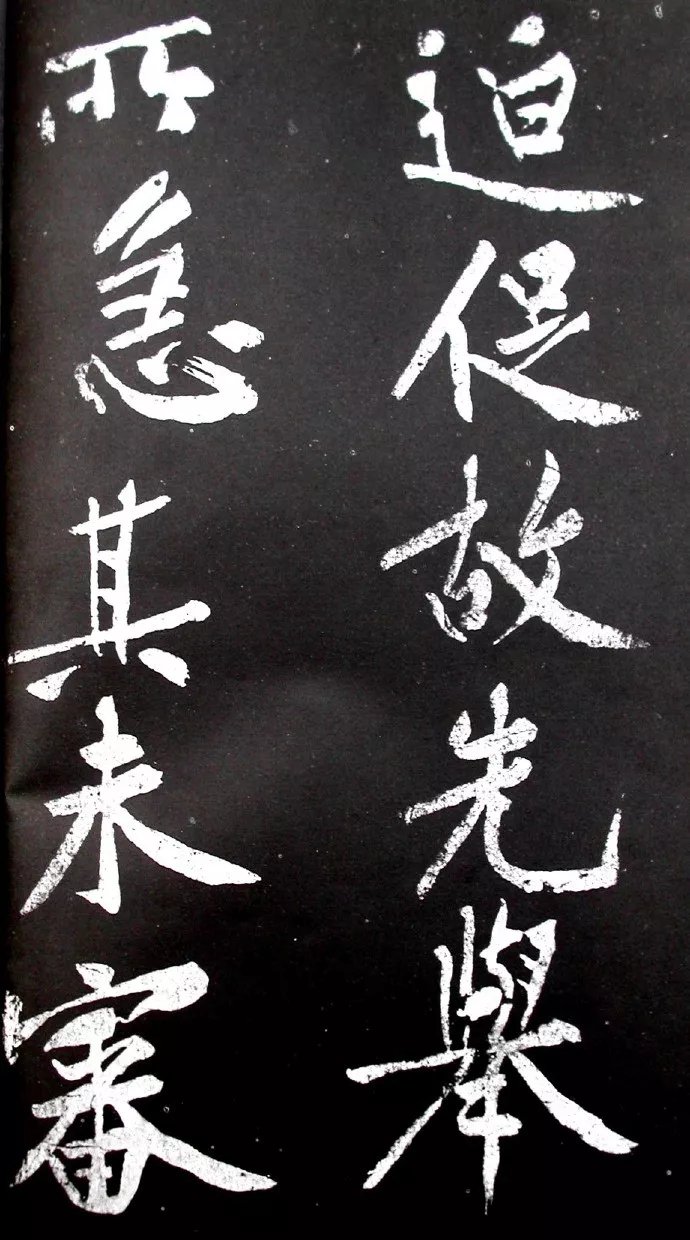 迫促故先舉
所急其未審